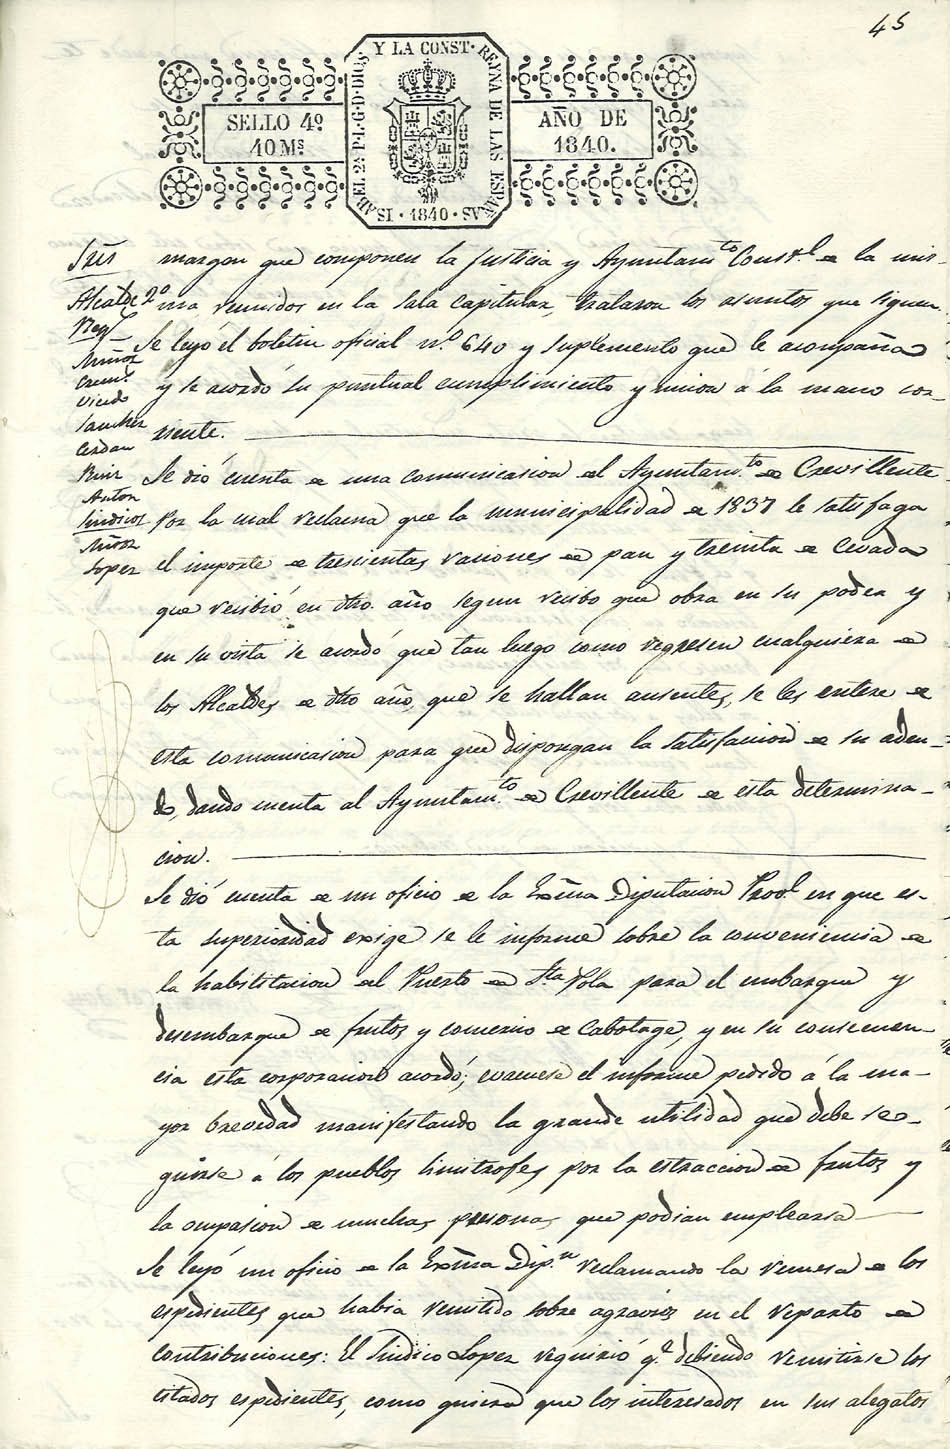 45
ISABEL 2ª P. L. G. D. DIOS Y LA CONST. REYNA DE LAS ESPAÑAS
SELLO 4º
40 Mˢ
AÑO DE
1840.
· 1840 ·
Sres
Alcalde 2º
Regˢ
Muñoz
Oviedo
Sanchez
Cerdan
Ruiz
Anton
Sindicos
Muñoz
Lopez
margen que componen la Justicia y Ayuntamto Constl. de la mis-
ma reunidos en la sala capitular, trataron los asuntos que siguen
Se leyó el boletin oficial nº 640 y suplemento que le acompaña
y se acordó su puntual cumplimiento y union á la mano cor-
riente.
Se dió cuenta de una comunicasion del Ayuntamto de Crevillente
por la cual reclama que la municipalidad de 1837 le satisfaga
el importe de trescientas raciones de pan y treinta de Cevada
que recibió en dho. año segun recibo que obra en su poder y
en su vista se acordó que tan luego como regresen cualquiera de
los Alcaldes de dho año, que se hallan ausentes, se les entere de
esta comunicasion para que dispongan la satisfacion de su adeu-
do, dando cuenta al Ayuntamto de Crevillente de esta determina-
cion.
Se dió cuenta de un oficio de la Exma Diputacion Provl. en que es-
ta superioridad exige se le informe sobre la conveniencia de
la habilitacion del Puerto de Sta Pola para el embarque y
desembarque de frutos y comercio de Cabotage, y en su consecuen-
cia esta corporacion acordó; evacuese el informe pedido á la ma-
yor brevedad manifestando la grande utilidad que debe se-
guirse á los pueblos limitrofes por la estraccion de frutos y
la ocupasion de muchas personas que podian emplearse
Se leyó un oficio de la Exma Dip.n reclamando la remesa de los
espedientes que habia remitido sobre agravios en el reparto de
contribuciones: El Sindico Lopez requirió q.e debiendo remitirse los
citados espedientes, como quiera que los interesados en sus alegatos